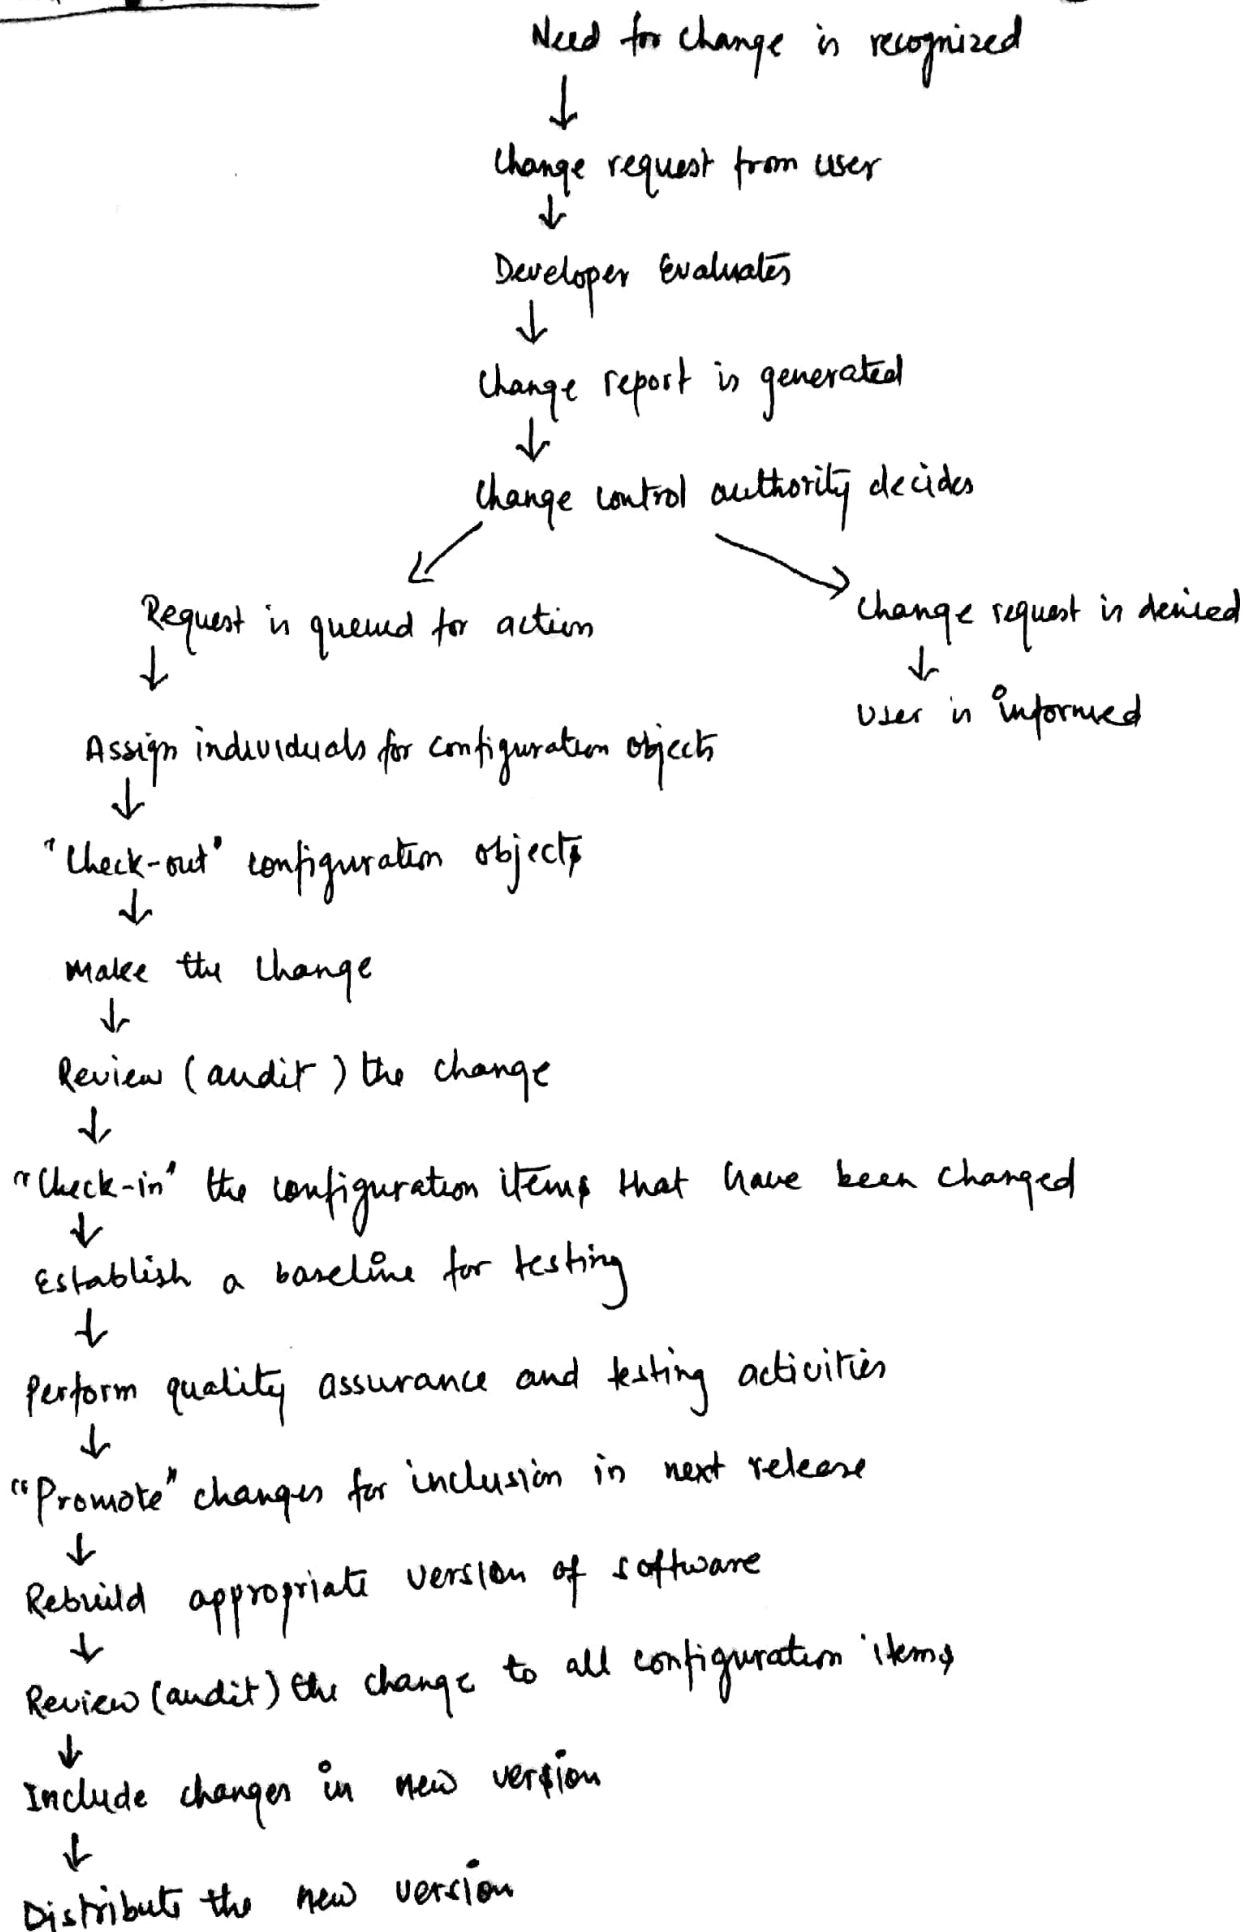 Need for change is recognized
↓
Change request from user
↓
Developer Evaluates
↓
Change report is generated
↓
Change control authority decides
Request is queued for action
↓
Assign individuals for configuration objects
↓
"Check-out" configuration objects
↓
Make the change
↓
Review (audit) the change
↓
"Check-in" the configuration items that have been changed
↓
Establish a baseline for testing
↓
Perform quality assurance and testing activities
↓
"Promote" changes for inclusion in next release
↓
Rebuild appropriate version of software
↓
Review (audit) the change to all configuration items
↓
Include changes in new version
↓
Distribute the new version
Change request is denied
↓
User is informed